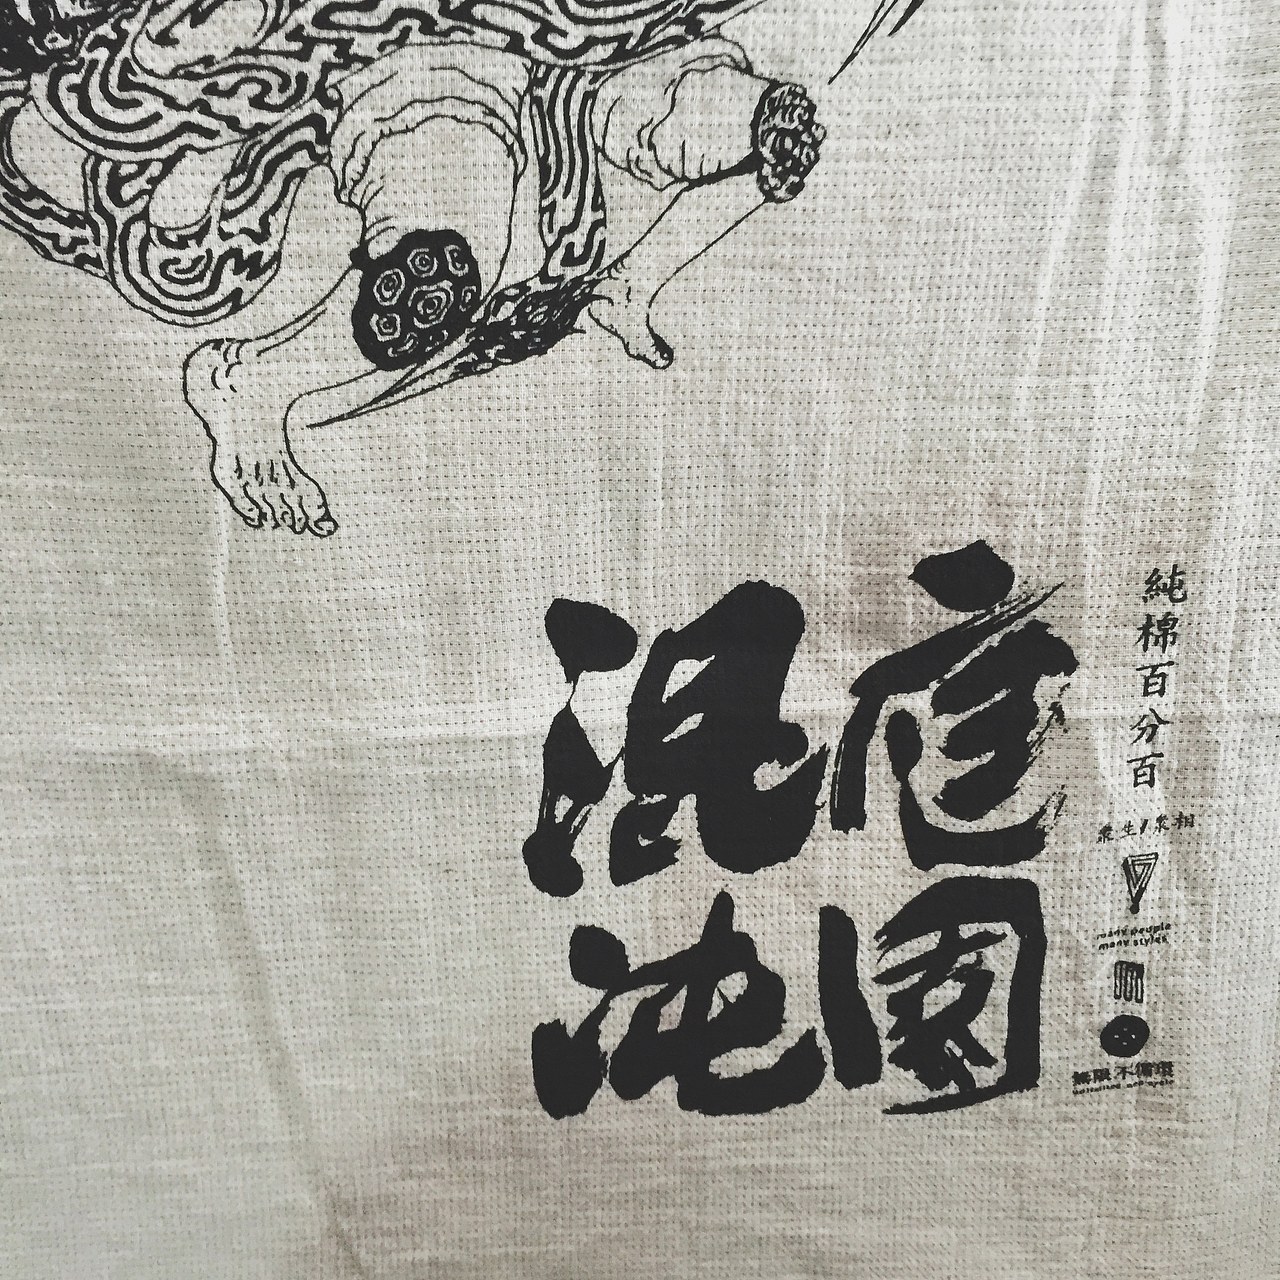 純棉百分百
庭園
混沌
眾生/眾相
many people
many styles
無限不循環